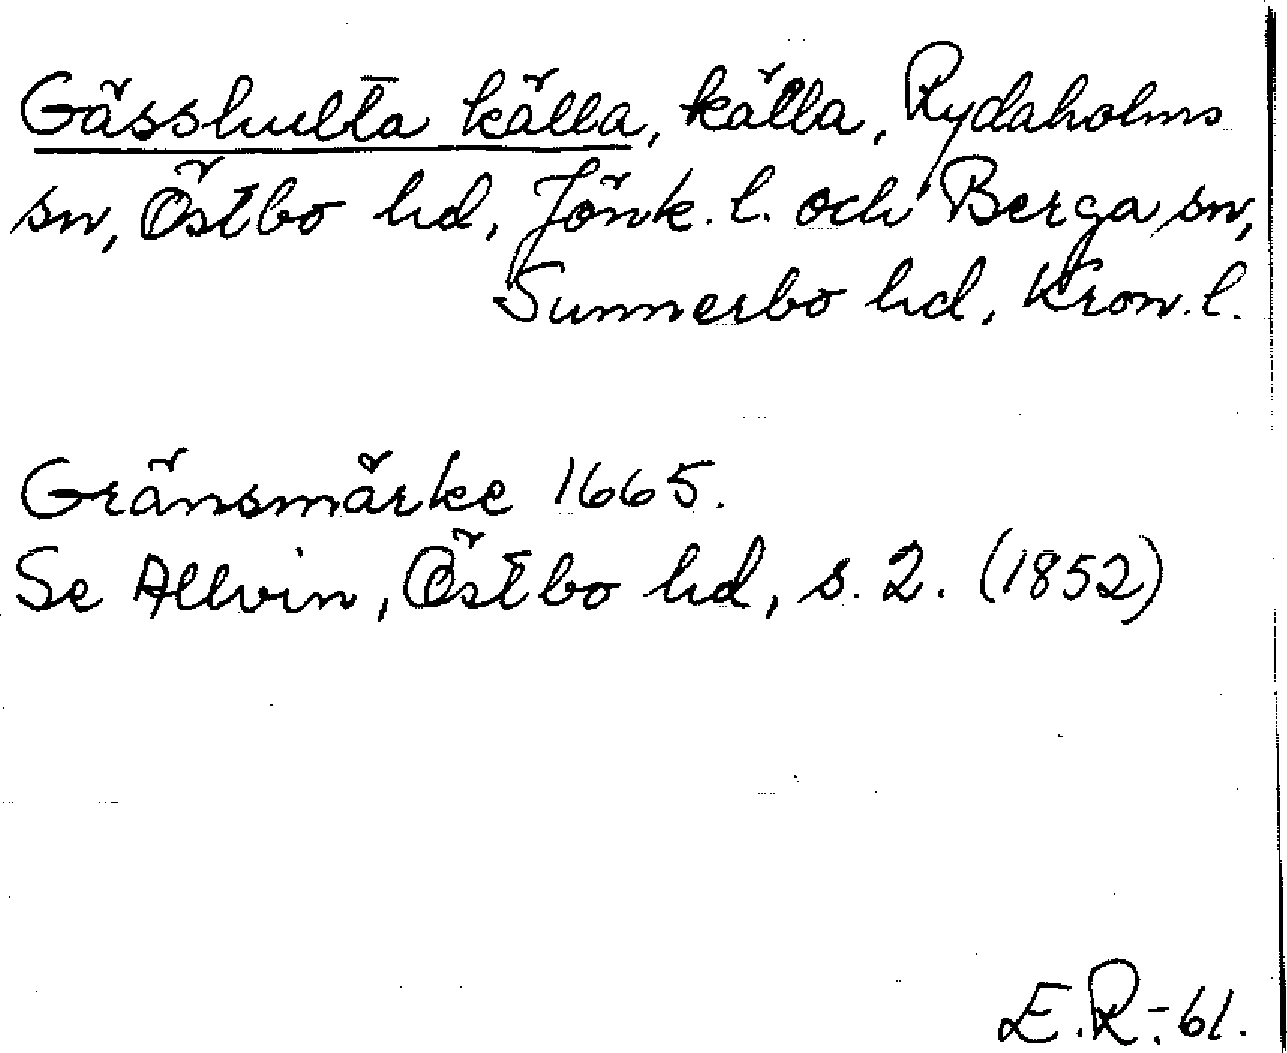 Gässhulta källa, källa, Rydaholms
sn, Östbo hd, Jönk. l. och Berga sn,
Sunnerbo hd, Kron. l.
Gränsmärke 1665.
Se Allvin, Östbo hd, s. 2. (1852)
E.R:-61.